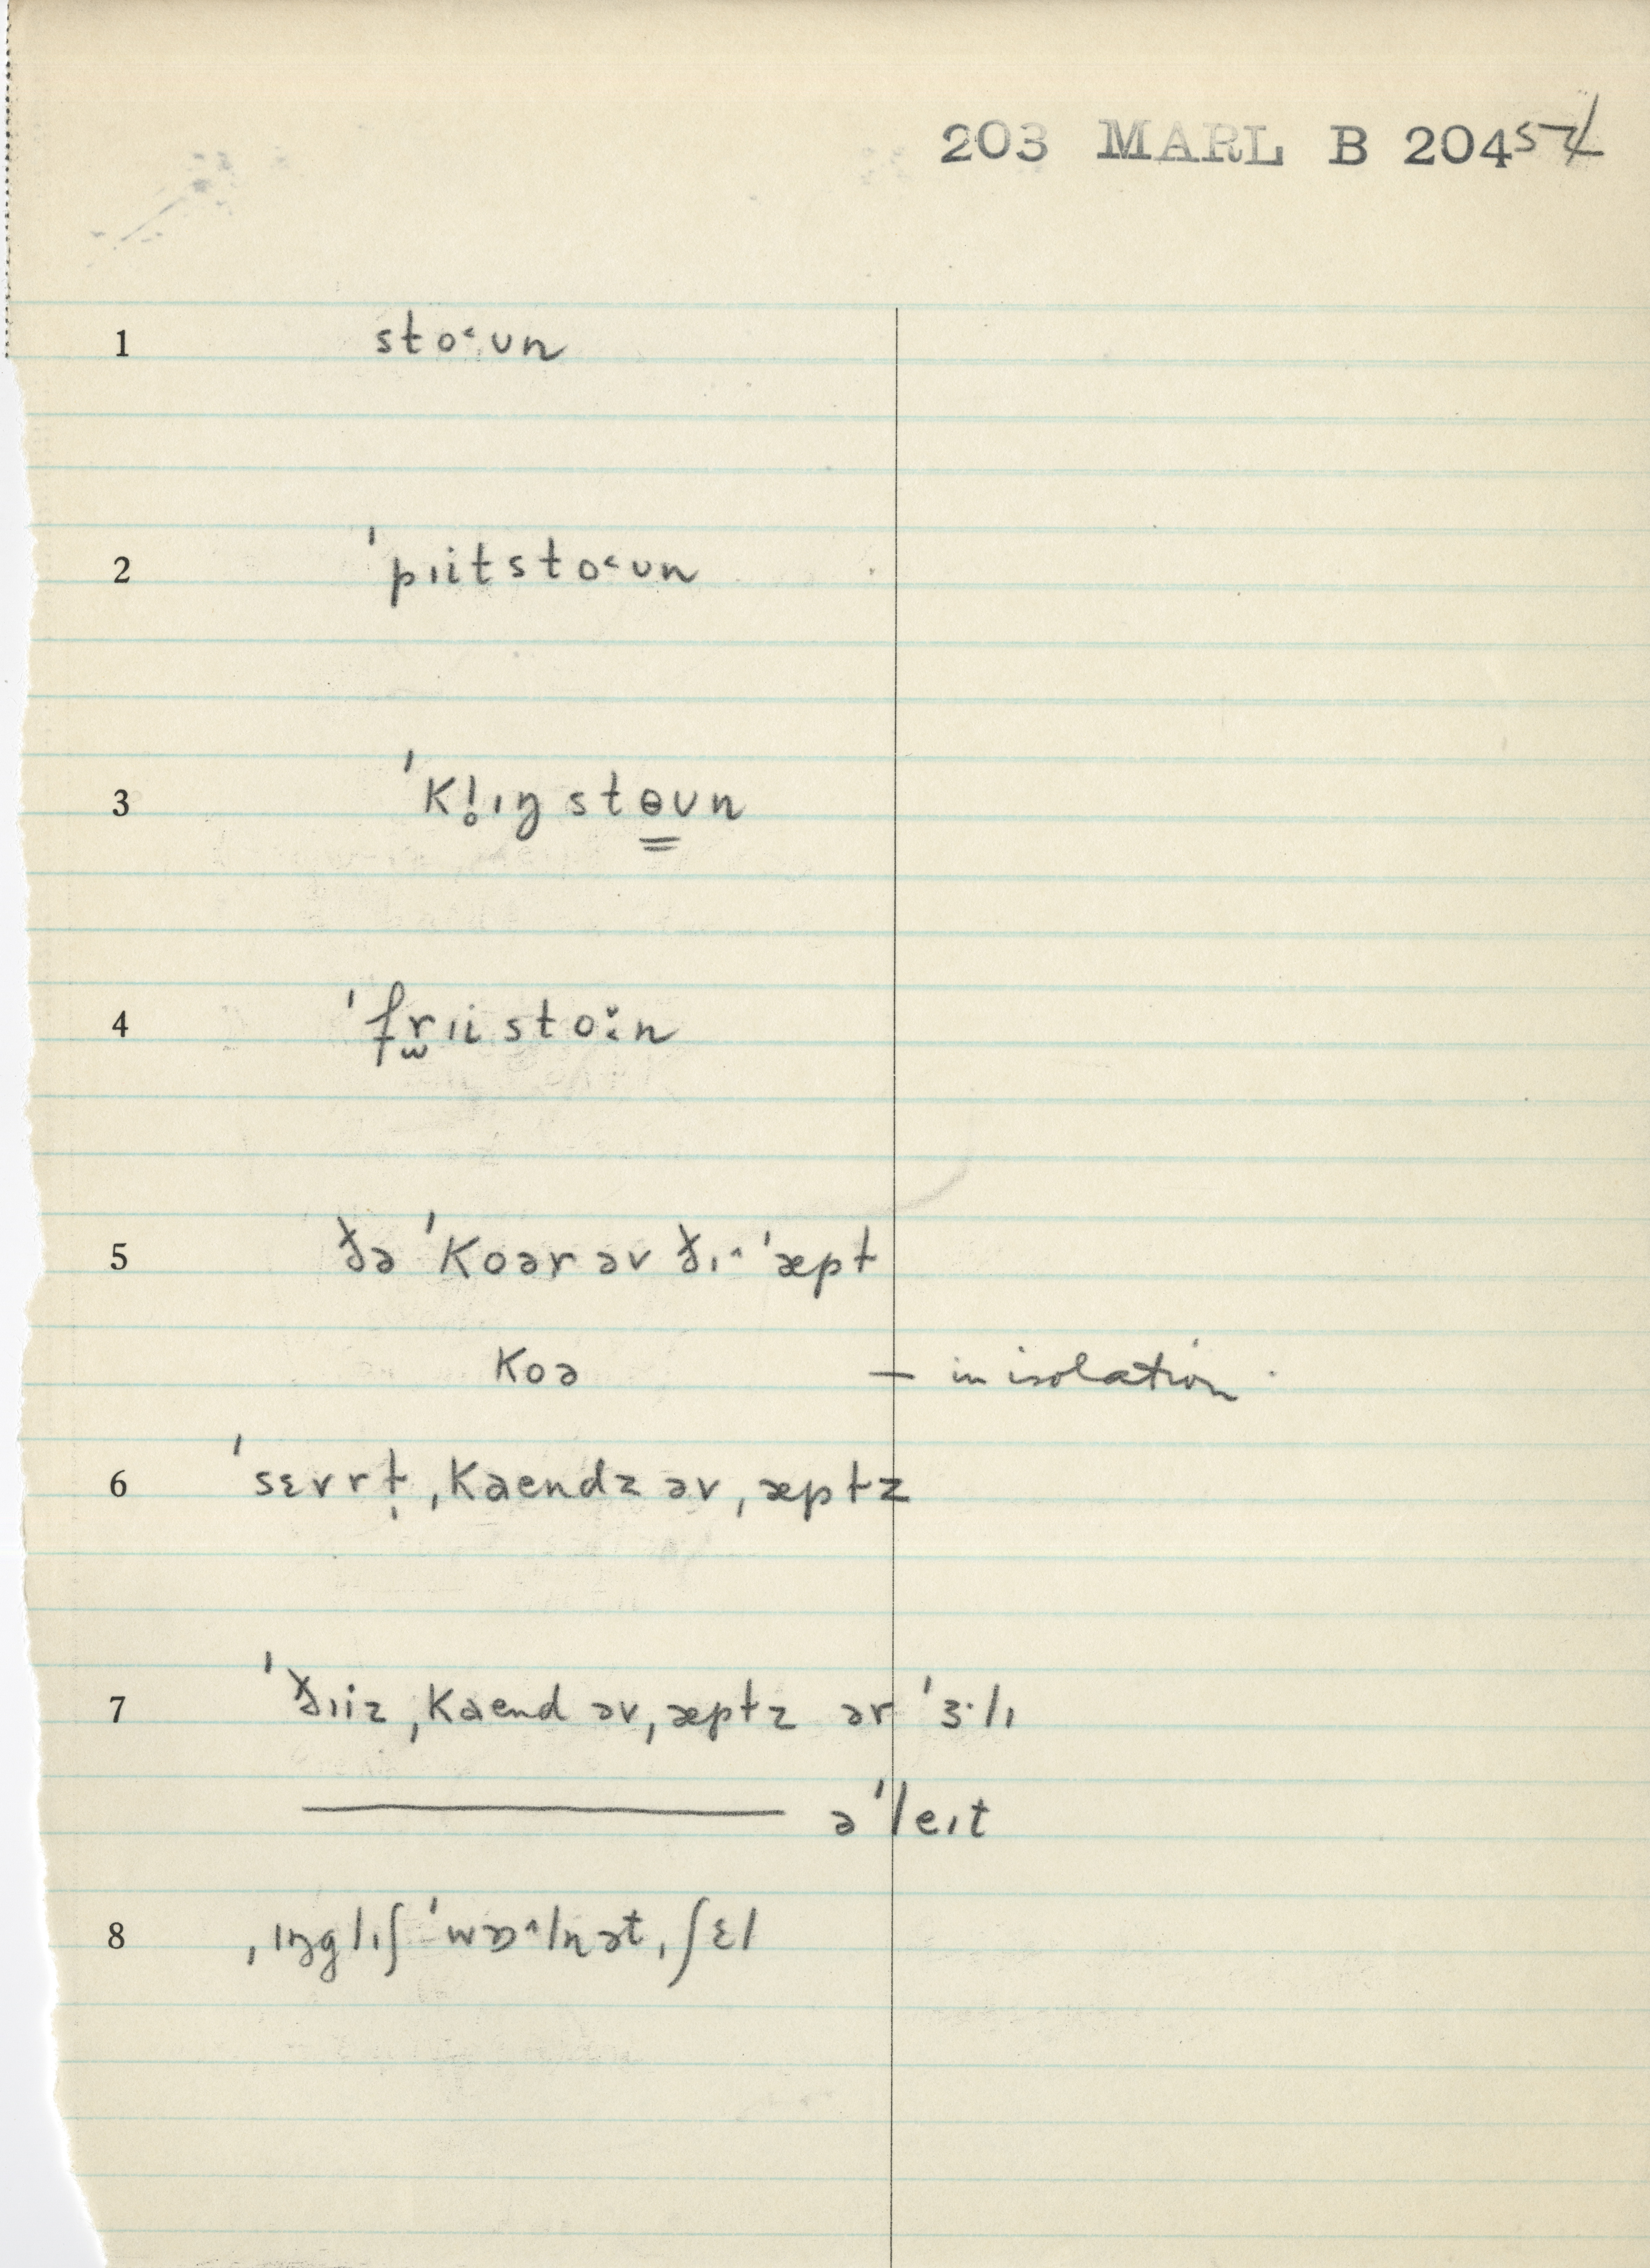 203 MARL B 204
1 sto˂ʊn
2 ˈpɪits to˂ʊn
3 ˈkl̥ɪŋ stɵʊn
4 ˈfrɪi sto˞n
5 ðə ˈkoər əv ðɪ^ ˈæpt
koə — in isolation
6 ˈsɛvrt̩ ˌkaendz əv ˌæptz
7 ˈðɪiz ˌkaend əv ˌæptz ər ˈɜ·lɪ
əˈleɪt
8 ˌɪŋglɪʃ ˈwɒ^lnət ˌʃɛl